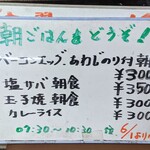 朝ごはんをどうぞ!
ベーコンエッグ、あわじのり付朝食
¥300
塩サバ 朝食 ¥350
玉子焼 朝食 ¥300
カレーライス ¥300
07:30~10:30迄 6/1より